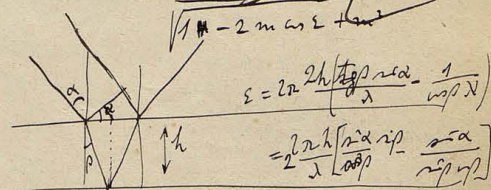 √1 - 2 m cos ε + m²
α
α
β
h
ε = 2π 2h (tgβ sinα / λ - 1 / cosβ λ)
= 2 2πh / λ [sinα sinβ / cosβ - sinα / sinβ cosβ]